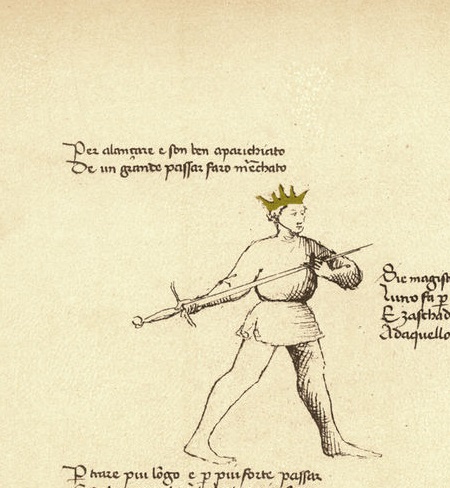 Per alançare e son ben aparichiato
De un grande passar faro merchato
Die magist
luno fa p
E zaschad
Adaquello
P trare piu lõgo e p piu forte passar